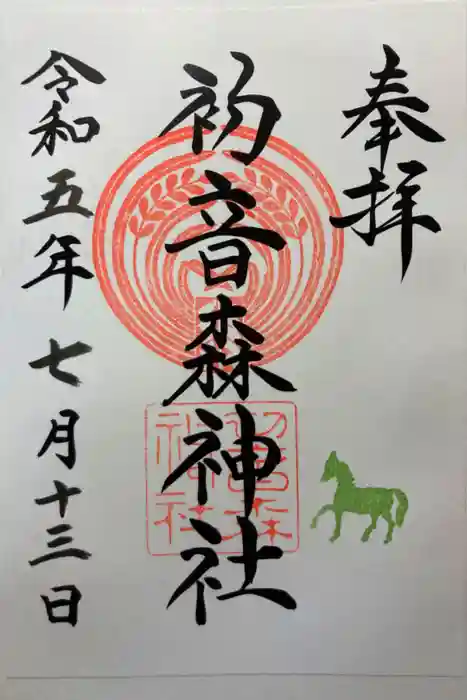 奉拝
初音森神社
初音森
神社
令和五年七月十三日